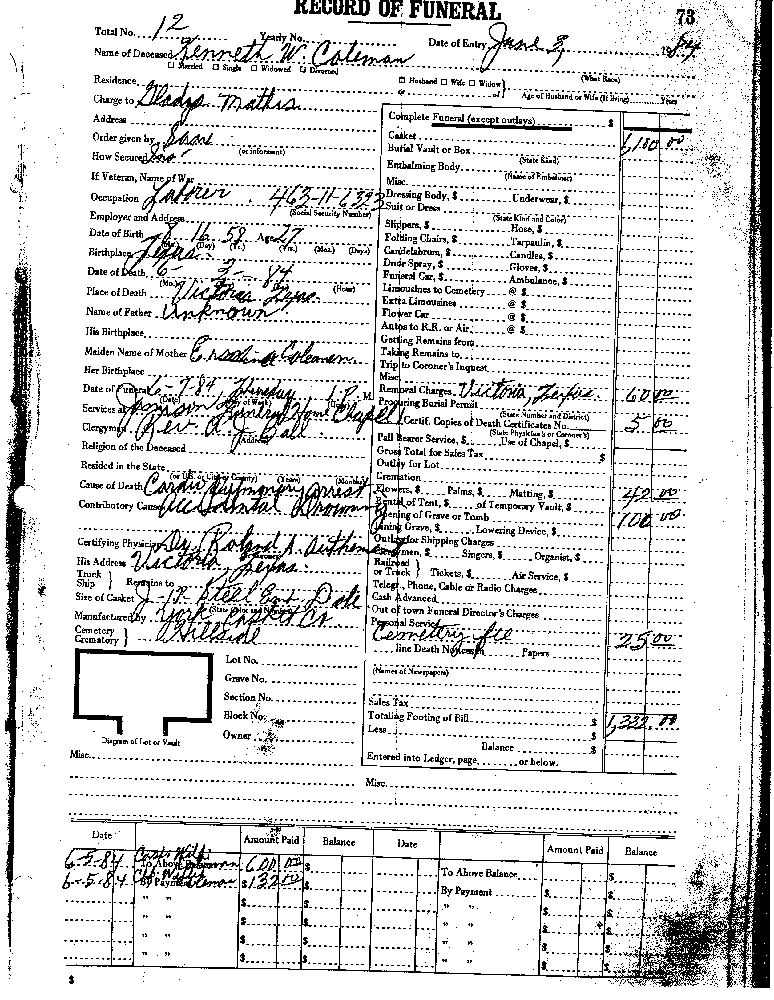 RECORD OF FUNERAL
73
Total No. 12 Yearly No. Date of Entry June 3, 1984
Name of Deceased Kenneth W. Coleman
☐ Married ☐ Single ☐ Widowed ☐ Divorced (What Race)
Residence ☐ Husband ☐ Wife ☐ Widow of Age of Husband or Wife (If living) Years
Charge to Gladys Mathis
Address
Order given by Same
How Secured (or informant)
If Veteran, Name of War
Occupation Laborer
(Social Security Number)
Employer and Address
Date of Birth 8 16 58 Age
(Mo.) (Day) (Yr.) (Yrs.) (Mos.) (Days)
Birthplace Texas
Date of Death 6 - 3 - 84
(Mo.) (Hour)
Place of Death Victoria Texas
Name of Father Unknown
His Birthplace
Maiden Name of Mother Coleman
Her Birthplace
Date of Funeral 6-7-84 1 P. M.
(Date)
Services at Funeral Home Chapel
Clergyman Rev. Ball
(Address)
Religion of the Deceased
Resided in the State
(or U.S. or City or County) (Years) (Months)
Cause of Death Cardio pulmonary arrest
Contributory Cause Accidental Drowning
Certifying Physician Dr. Roland
His Address Victoria, Texas
Truck Ship } Remains to
Size of Casket Steel
(State Color and Number)
Manufactured by York Casket Co
Cemetery Crematory } Hillside
Lot No.
Grave No.
Section No.
Block No.
Owner
Diagram of Lot or Vault
Misc.
Complete Funeral (except outlays) $
Casket 1,100 00
Burial Vault or Box
(State Kind)
Embalming Body
(Name of Embalmer)
Misc.
Dressing Body, $ Underwear, $
Suit or Dress
(State Kind and Color)
Slippers, $ Hose, $
Folding Chairs, $ Tarpaulin, $
Candelabrum, $ Candles, $
Door Spray, $ Gloves, $
Funeral Car, $ Ambulance, $
Limousines to Cemetery @ $
Extra Limousines @ $
Flower Car @ $
Autos to R.R. or Air @ $
Getting Remains from
Taking Remains to
Trip to Coroner's Inquest
Misc.
Removal Charges Victoria, Texas 60 00
Procuring Burial Permit
(State Number and District)
Certif. Copies of Death Certificates No. 5 00
(State Physician's or Coroner's)
Pall Bearer Service, $ Use of Chapel, $
Gross Total for Sales Tax $
Outlay for Lot
Cremation
Flowers, $ Palms, $ Matting, $ 42 00
Rental of Tent, $ of Temporary Vault, $
Opening of Grave or Tomb 100 00
Lining Grave, $ Lowering Device, $
Outlay for Shipping Charges
Clergymen, $ Singers, $ Organist, $
Railroad or Truck } Tickets, $ Air Service, $
Telegr., Phone, Cable or Radio Charges
Cash Advanced
Out of town Funeral Director's Charges
Personal Service
Cemetery fee 25 00
line Death Notices in Papers
(Names of Newspapers)
Sales Tax
Totaling Footing of Bill $ 1,332.00
Less $
Balance $
Entered into Ledger, page or below.
Misc.
Date Amount Paid Balance Date Amount Paid Balance
6-5-84 To Above Balance 600 00 $ To Above Balance $
6-5-84 By Payment $132 00 By Payment $
" " $ " " $
" " $ " " $
" " $ " " $
" " $ " " $
$